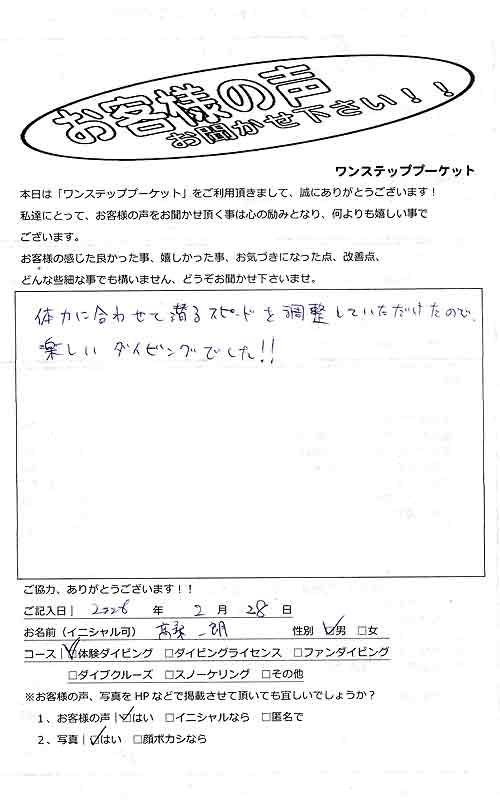 お客様の声
お聞かせ下さい！！
ワンステッププーケット
本日は「ワンステッププーケット」をご利用頂きまして、誠にありがとうございます！
私達にとって、お客様の声をお聞かせ頂く事は心の励みとなり、何よりも嬉しい事で
ございます。
お客様の感じた良かった事、嬉しかった事、お気づきになった点、改善点、
どんな些細な事でも構いません、どうぞお聞かせ下さいませ。
体力に合わせて潜るスピードを調整していただけたので、
楽しいダイビングでした!!
ご協力、ありがとうございます！！
ご記入日| 2026 年 2 月 28 日
お名前（イニシャル可） 一朗 性別 ☑男 □女
コース|☑体験ダイビング □ダイビングライセンス □ファンダイビング
□ダイブクルーズ □スノーケリング □その他
※お客様の声、写真をHPなどで掲載させて頂いても宜しいでしょうか？
１、お客様の声|☑はい □イニシャルなら □匿名で
２、写真|☑はい □顔ボカシなら